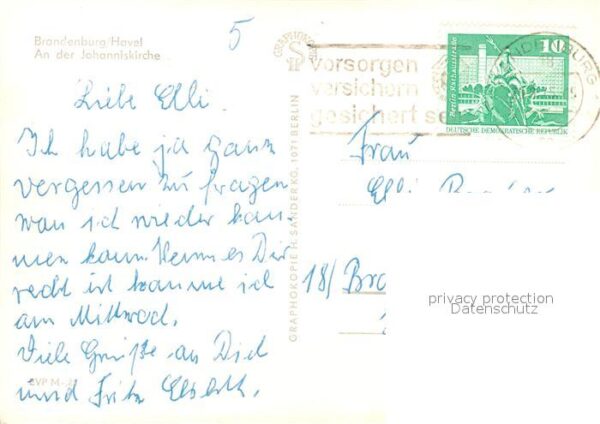 Brandenburg/Havel
An der Johanniskirche
5
GRAPHOKOPIE
vorsorgen
versichern
gesichert se
BRANDENBURG
10
Berlin, Rathausstraße
DEUTSCHE DEMOKRATISCHE REPUBLIK
Liebe Elli.
Ich habe ja ganz
vergessen zu fragen
wan ich wieder kom
men kann. Wenn es Dir
recht ist komme ich
am Mittwoch.
Viele Grüße an Dich
und Fritz
EVP M
GRAPHOKOPIE H. SANDER KG, 1071 BERLIN
Frau
Elli
18/ Bra
privacy protection
Datenschutz